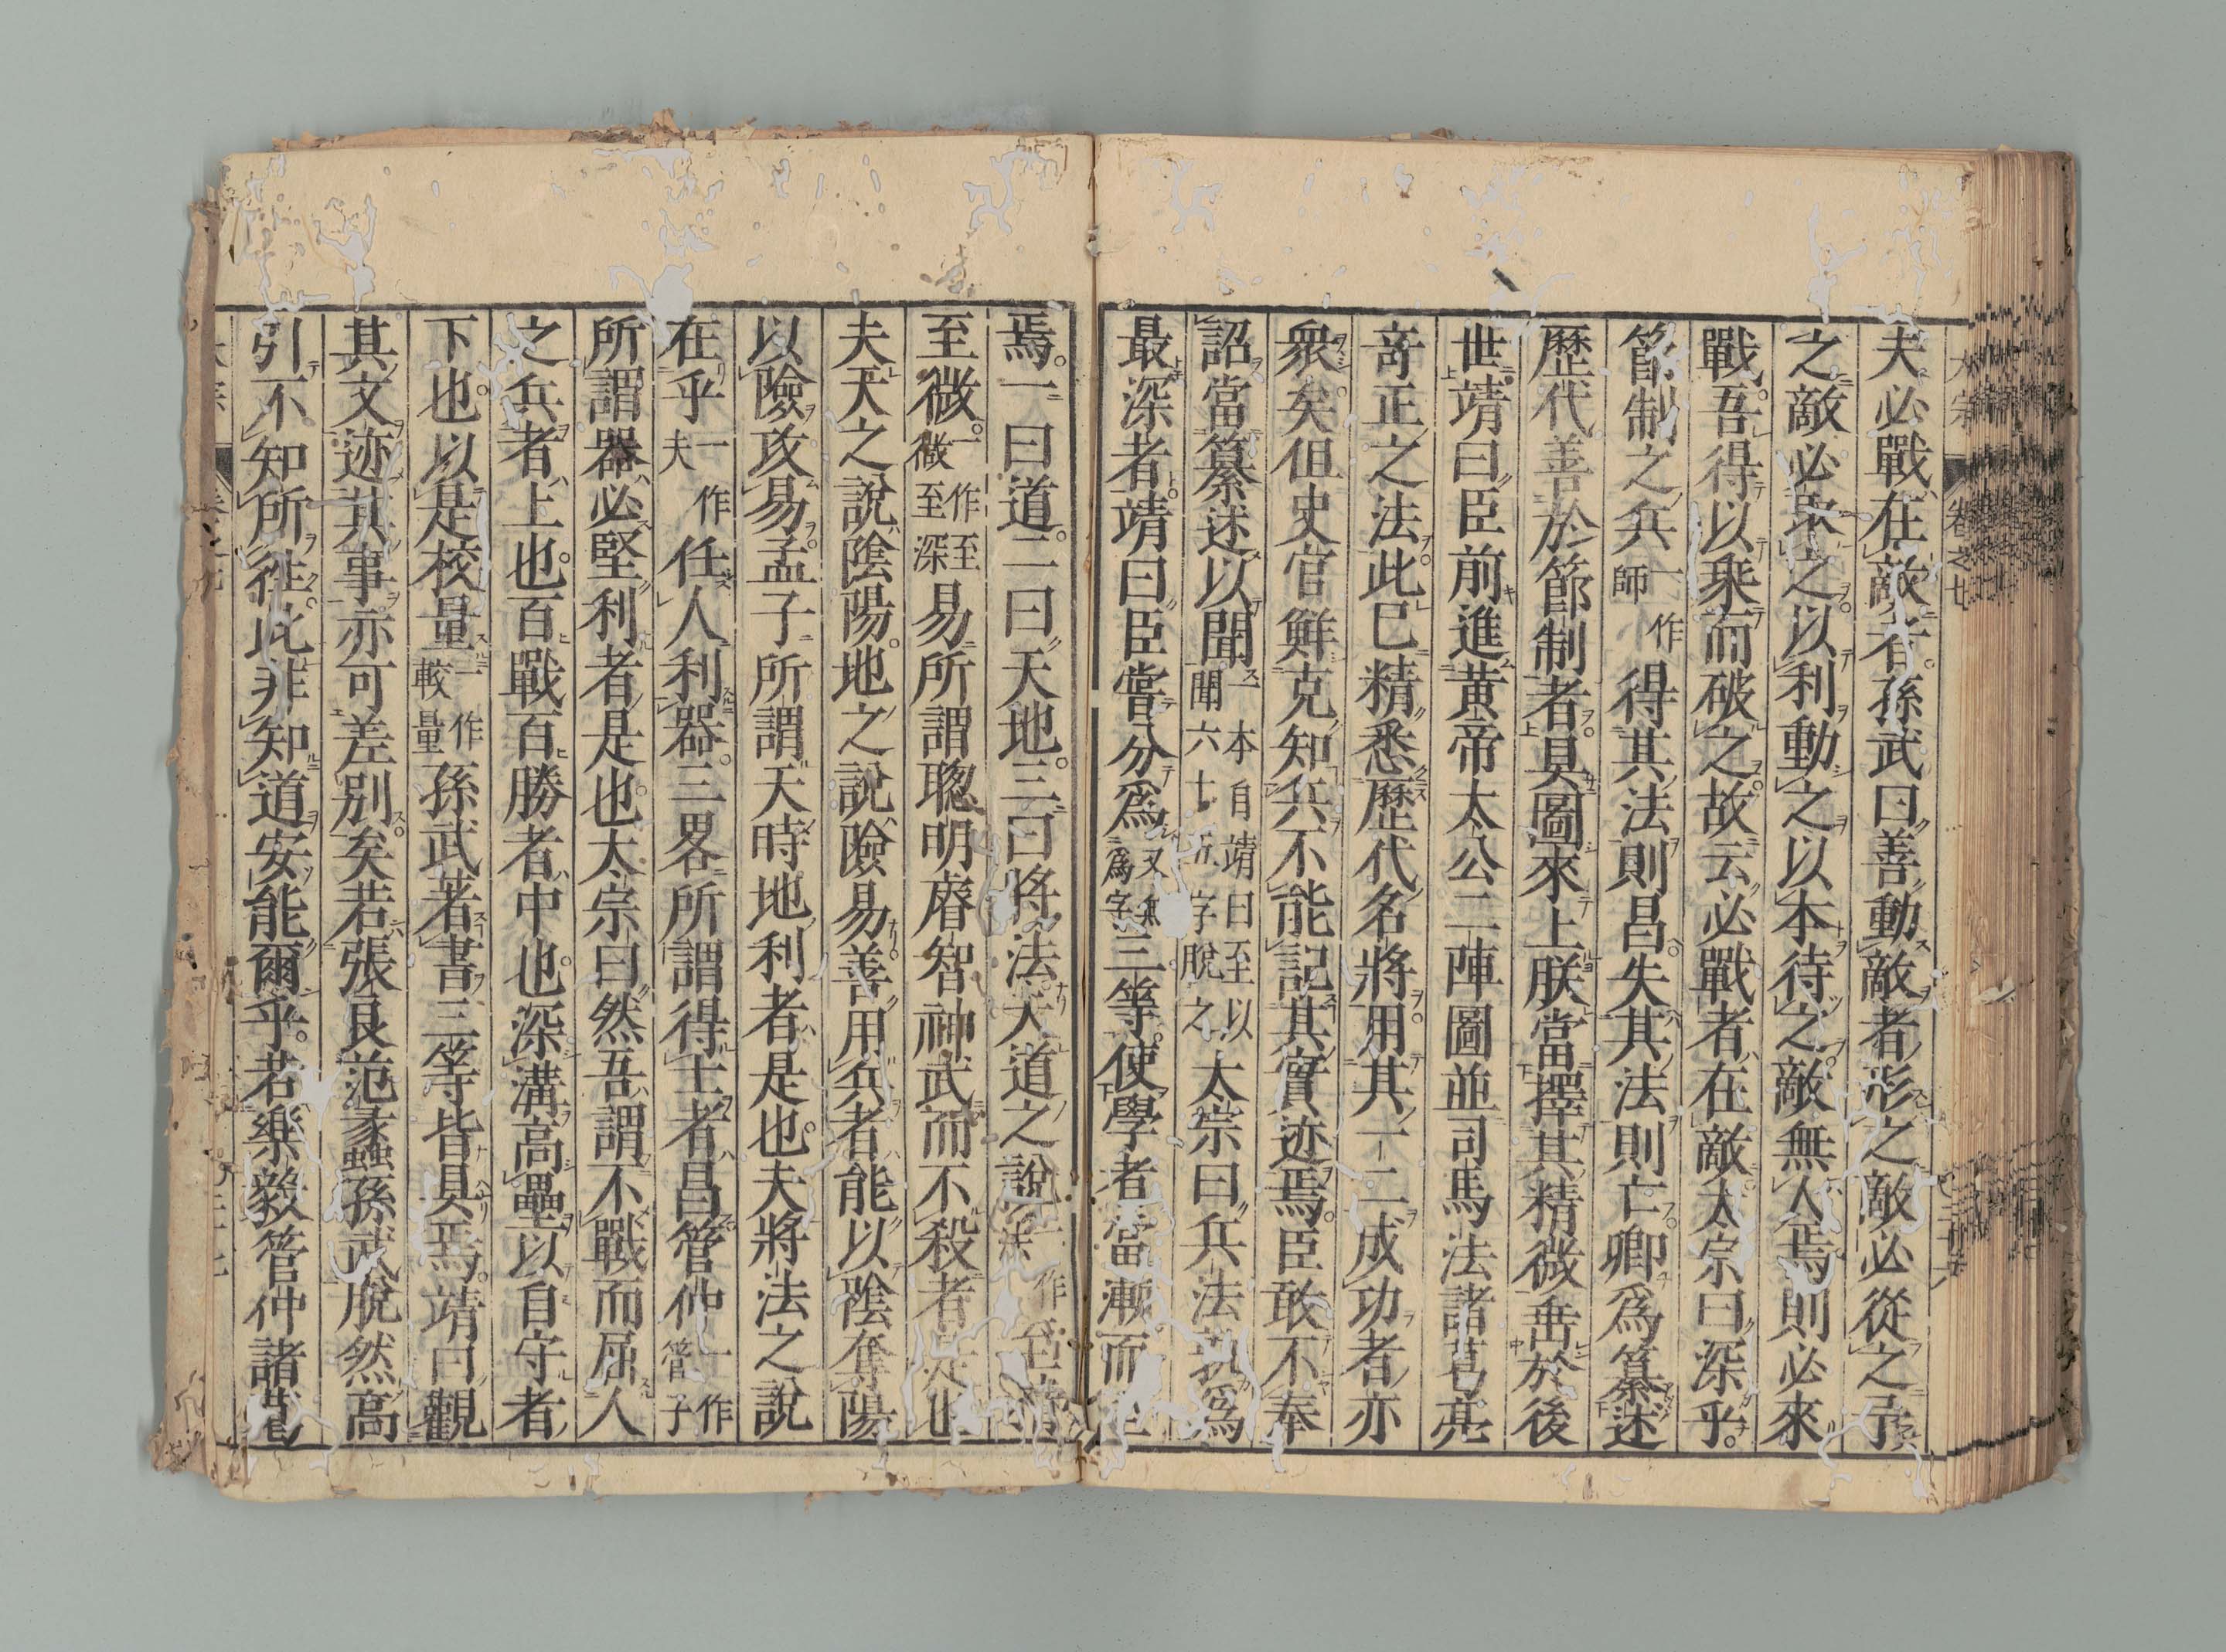 夫必戰在敵者孫武曰善動敵者形之敵必從之予
之敵必取之以利動之以本待之敵無人焉則必來
戰吾得以乘而破之故云必戰者在敵太宗曰深乎
節制之兵一作師得其法則昌失其法則亡卿爲纂述
歷代善於節制者具圖來上朕當擇其精微垂於後
世靖曰臣前進黄帝太公二陣圖並司馬法諸葛亮
竒正之法此已精悉歷代名將用其一二成功者亦
衆矣但史官鮮克知兵不能記其實迹焉臣敢不奉
詔當纂述以聞一本自靖曰至以聞六十五字脫之太宗曰兵法孰爲
最深者靖曰臣嘗分爲又無爲字三等使學者當漸而至
焉一曰道二曰天地三曰將法夫道之說一作至
至微一作至微至深易所謂聰明睿智神武而不殺者是也
夫天之說陰陽地之說險易善用兵者能以陰奪陽
以險攻易孟子所謂天時地利者是也夫將法之說
在乎一作夫任人利器三畧所謂得士者昌管仲一作管子
所謂器必堅利者是也太宗曰然吾謂不戰而屈人
之兵者上也百戰百勝者中也深溝高壘以自守者
下也以是校量一作較量孫武著書三等皆具焉靖曰觀
其文迹其事亦可差別矣若張良范蠡孫武脫然高
引不知所往此非知道安能爾乎若樂毅管仲諸葛